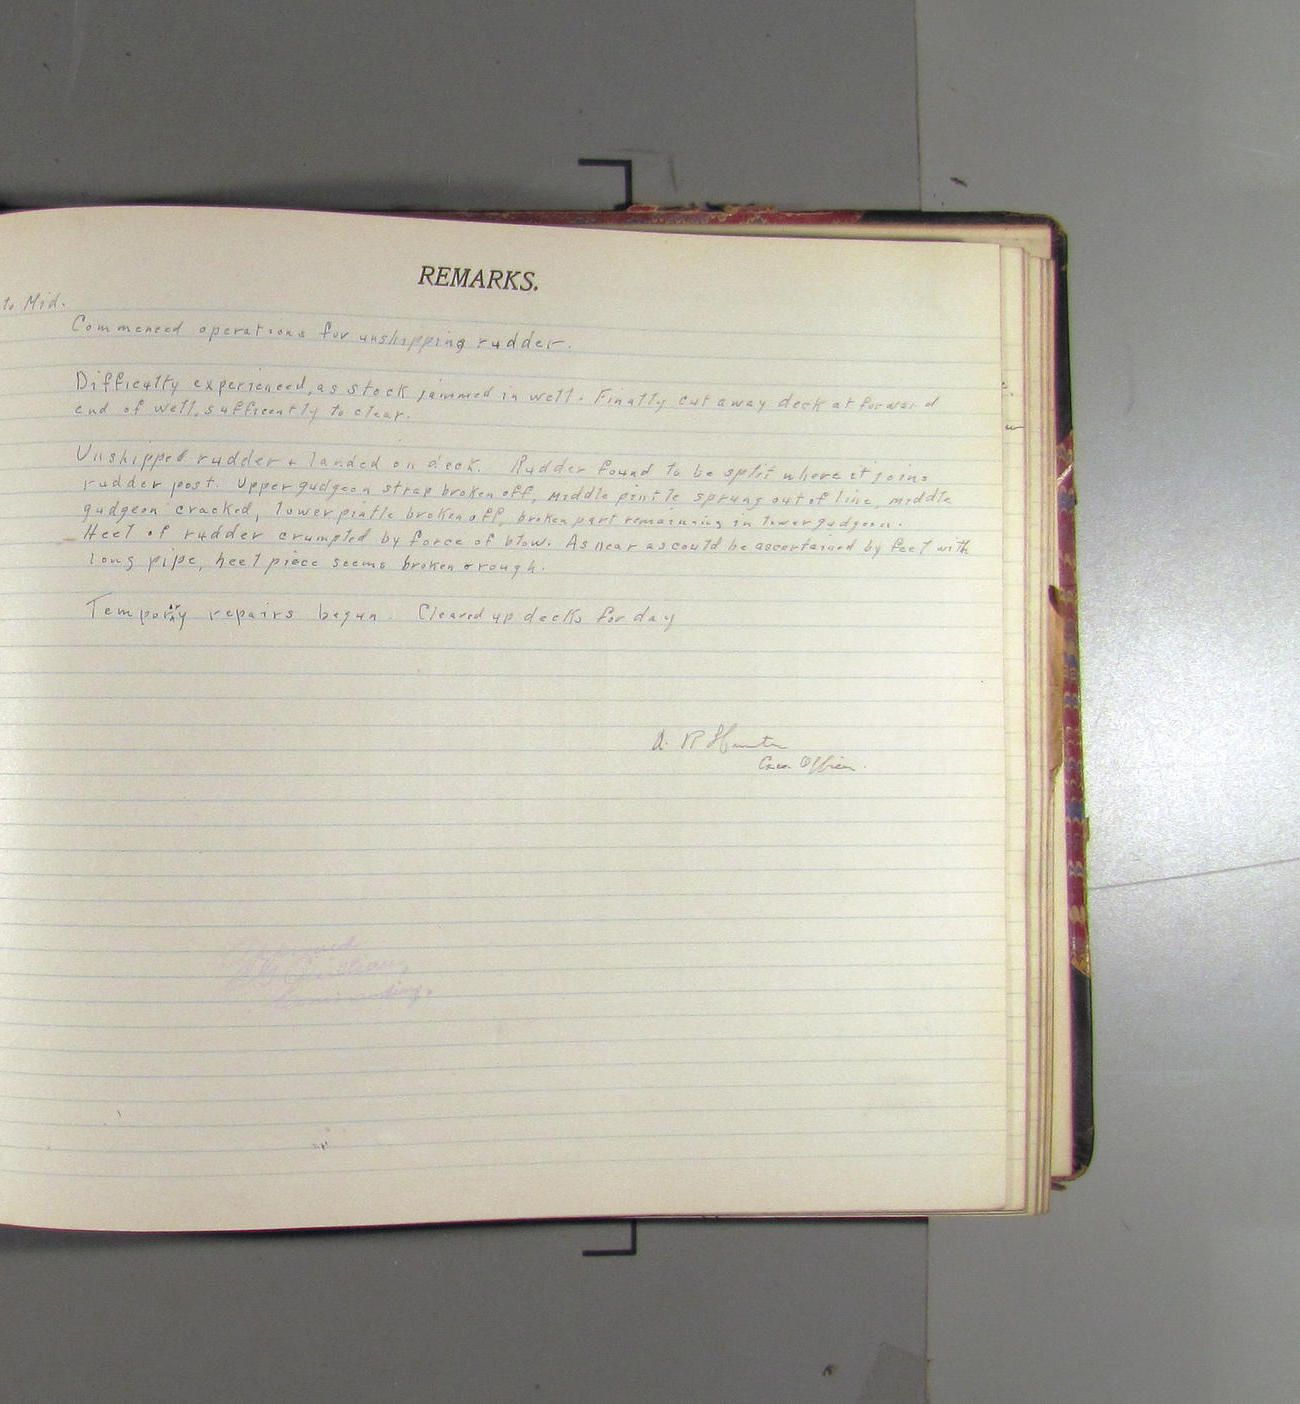 REMARKS.
to Mid.
Commenced operations for unshipping rudder.
Difficulty experienced, as stock jammed in well. Finally cut away deck at forward
end of well, sufficently to clear.
Unshipped rudder + landed on deck. Rudder found to be split where it joins
rudder post. Upper gudgeon strap broken off, middle pintle sprung out of line, middle
gudgeon cracked, lower pintle broken off, broken part remaining in lower gudgeon.
Heel of rudder crumpled by force of blow. As near as could be ascertained by feel with
long pipe, heel piece seems broken + rough.
Temporary repairs begun. Cleared up decks for day
A. R Hunter
Exec. Officer.
Approved
Commanding.